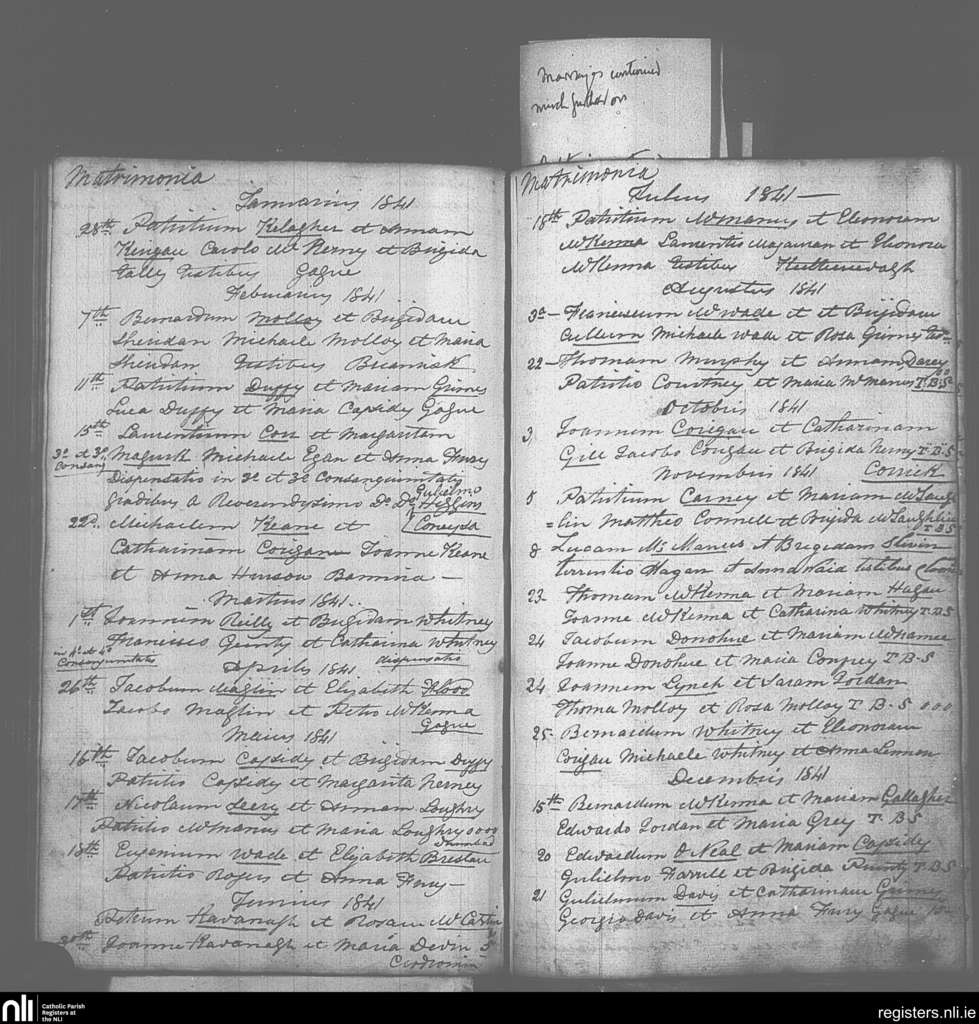 Marriages continued
much further on
Matrimonia
Januarius 1841
28th Patritium Kelagher et Annam
Keugau Carolo McNerny et Brigida
Gally Testibus Gague
Februarius 1841
7th Bernardum Molloy et Brigidam
Sheridan Michaele Molloy et Maria
Sheridan Testibus
11th Patritium Duffy et Mariam Grimes
Luca Duffy et Maria Capidy Gague
15th Laurentium Cox et Margaritam
3o et 3o Magurk Michaele Egan et Anna Fury
Consang
Dispensatio in 3o et 3o Consanguinitatis
gradibus a Reverendissimo Do Do Gulielmo
O Higgins
22d Michaelem Keane et
Catharinam Corigan Joanne Keane
et Anna Hinson Bamina
Martius 1841
1st Joannem Reilly et Brigidam Whitney
Francisco Geurty et Catharina Whitney
in 4o et 4o
Consanguinitatis
dispensatio
Aprilis 1841
26th Jacobum Maglin et Elizabeth Flood
Jacobo Maglin et Petro McKenna
Gague
Maius 1841
16th Jacobum Capidy et Brigidam Duffy
Patritio Capidy et Margarita Nerney
17th Nicolaum Leery et Annam Loughry
Patritio McManus et Maria Loughry 000
18th Eugenium Wade et Elizabeth Breslau
Patritio Rogers et Anna Fury
Junius 1841
Petrum Kavanagh et Rosam McCabe
30th Joanne Kavanagh et Maria Devin
Matrimonia
Julius 1841
18th Patritium McManus et Eleonoram
McKenna Laurentio Magauran et Eleonora
McKenna Testibus
Augustus 1841
3d Franciscum McWade et et Brigidam
Cullum Michaele Wade et Rosa Girney
22 Thomam Murphy et Annam Darcy
Patritio Courtney et Maria McManus T.B.S
Octobris 1841
3 Joannem Corigau et Catharinam
Gill Jacobo Corigau et Brigida Nerny T.B.S
Novembris 1841 Corrick
8 Patritium Carney et Mariam McLaugh
=lin Mattheo Connell et Brigida McLaughlin
T B S
8 Lucam McManus et Bregidam Slevin
Terrentio Hagan et Anna Naid testibus
23 Thomam McKenna et Mariam Hagan
Joanne McKenna et Catharina Whitney T.B.S
24 Jacobum Donohue et Mariam McNamee
Joanne Donohue et Maria Confrey T.B.S
24 Joannem Lynch et Saram Jordan
Thoma Molloy et Rosa Molloy T. B. S 000
25 Bernardum Whitney et Eleonoram
Corigau Michaele Whitney et Anna Lennon
Decembris 1841
15th Bernardum McKenna et Mariam Gallagher
Edwardo Jordan et Maria Grey T B S
20 Edwardum O Neal et Mariam Capidy
Gulielmo Farrill et Brigida T.B.S
21 Gulielmum Davis et Catharinam Grimes
Georgio Davis et Anna Fury Gague
nli
Catholic Parish
Registers at
the NLI
registers.nli.ie